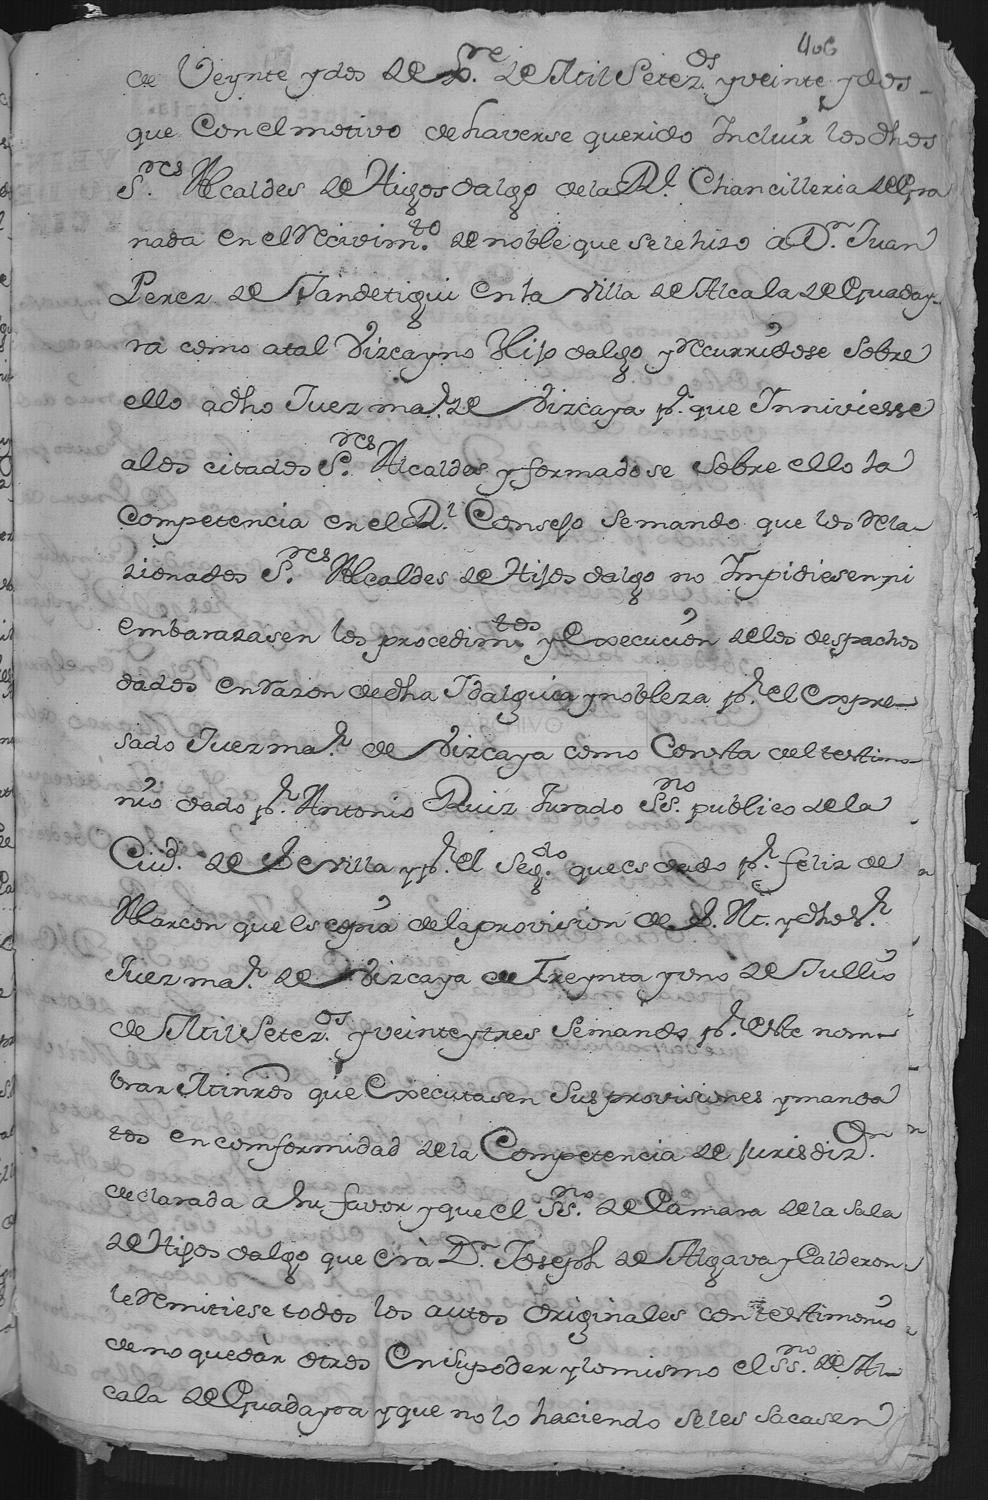 406
de Veynte y dos de D.re de Mil Setez.os y veinte y dos
que Con el motivo de haverse querido Incluir los dhos
S.res Alcaldes de Higos dalgo de la R.l Chancilleria de Gra
nada en el Recivim.to de noble que se le hizo a D.n Juan
Perez de Jandetigui en la Villa de Alcala de Guaday-
ra como atal Vizcayno Hijo dalgo y Recurridose Sobre
ello adho Juez ma.r de Vizcaya p.r que Inniviesse
a los citados S.res Alcaldes y formadose Sobre ello la
Competencia en el R.l Consejo Se mando que los Rela-
zionados S.res Alcaldes de Hijos dalgo no Impidiesen ni
embarazasen los procedim.tos y Execucion de los despachos
dados en Razon de dha Idalguia y nobleza p.r el Expre-
sado Juez ma.r de Vizcaya como Consta del testimo-
nio dado p.r Antonio Ruiz Jurado Ss.no publico de la
Ciud. de Sevilla y p.r el Seg.do que es dado p.r feliz de
Alarcon que es copia de la provision de S. M. y dho S.r
Juez ma.r de Vizcaya de Treynta y uno de Jullio
de Mil Setez.os y veinte y tres Se mando p.r este nom-
brar Minros que Executasen Sus provisiones y manda
tos en comformidad de la Competencia de Jurisdiz.on
declarada a su favor y que el Ss.no de Camara de la Sala
de Higos dalgo que era D.n Joseph de Algava y Calderon
le Remitiese todos los autos originales con testimonio
de no quedar otros En Su poder y lo mismo el Ss.no de Al-
cala de Guadayra y que no lo haciendo Se les Sacasen
ARCHIVO